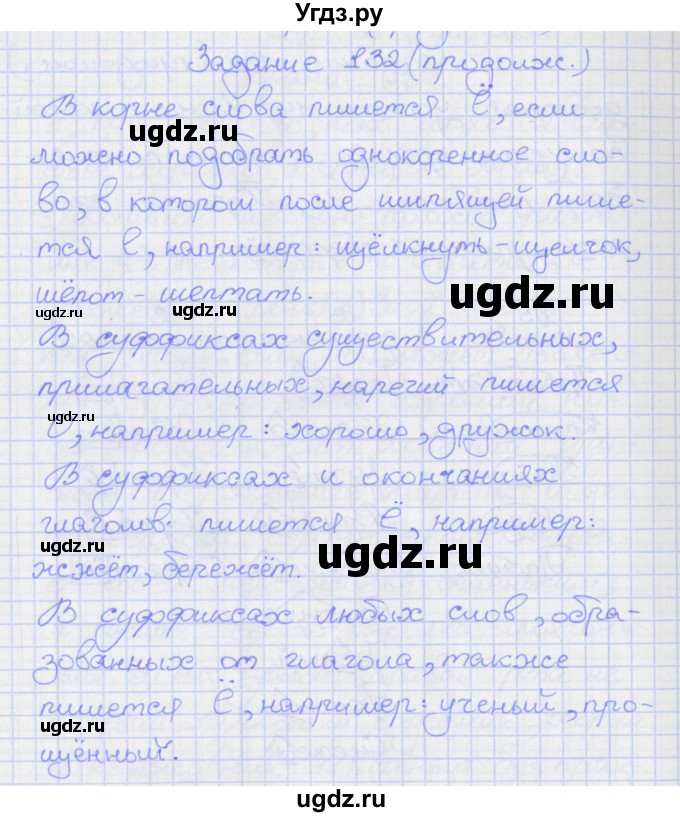 Угдз.ру
Задание 132 (продолж.)
В корне слова пишется Ё, если
ugdz.ru
можно подобрать однокоренное сло-
во, в котором после шипящей пише-
ugdz.ru
тся е, например: щёлкнуть - щелчок,
ugdz.ru
шёпот - шептать.
ugdz.ru
ugdz.ru
В суффиксах существительных,
прилагательных, наречий пишется
ugdz.ru
О, например: хорошо, дружок.
В суффиксах и окончаниях
глаголов пишется Ё, например:
ugdz.ru
ugdz.ru
жжёт, бережёт.
В суффиксах любых слов, обра-
зованных от глагола, также
пишется Ё, например: ученый, про-
ugdz.ru
щённый.
ugdz.ru